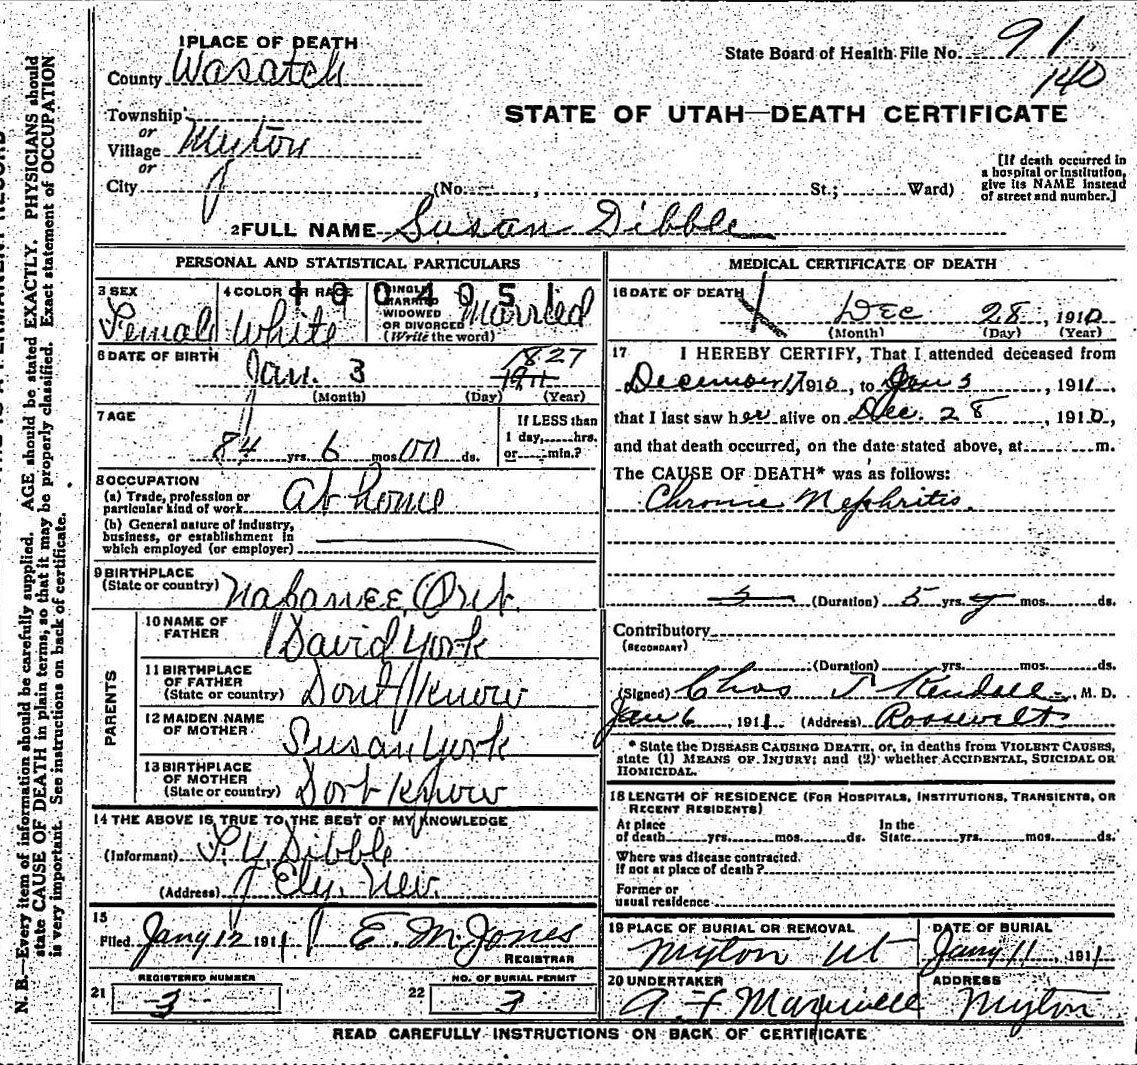 1 PLACE OF DEATH
County Wasatch
Township
or
Village Myton
or
City (No. , St.; Ward)
State Board of Health File No. 91
140
STATE OF UTAH—DEATH CERTIFICATE
[If death occurred in
a hospital or institution,
give its NAME instead
of street and number.]
2 FULL NAME Susan Dibble
PERSONAL AND STATISTICAL PARTICULARS
3 SEX
Female
4 COLOR OR RACE
White
100 4051
SINGLE
MARRIED
WIDOWED
OR DIVORCED
(Write the word)
Married
6 DATE OF BIRTH
Jan. 3 1827
(Month) (Day) (Year)
7 AGE
84 yrs. 6 mos. 00 ds.
If LESS than
1 day, hrs.
or min.?
8 OCCUPATION
(a) Trade, profession or
particular kind of work At home
(b) General nature of industry,
business, or establishment in
which employed (or employer)
9 BIRTHPLACE
(State or country) Napanee, Ont.
PARENTS
10 NAME OF
FATHER David York
11 BIRTHPLACE
OF FATHER
(State or country) Dont Know
12 MAIDEN NAME
OF MOTHER Susan York
13 BIRTHPLACE
OF MOTHER
(State or country) Dont Know
14 THE ABOVE IS TRUE TO THE BEST OF MY KNOWLEDGE
(Informant) Dibble
(Address) Ely. Nev.
15
Filed Jany 12 1911 E. M. Jones
REGISTRAR
REGISTERED NUMBER
21 3
NO. OF BURIAL PERMIT
22 3
MEDICAL CERTIFICATE OF DEATH
16 DATE OF DEATH
X Dec 28, 1910
(Month) (Day) (Year)
17 I HEREBY CERTIFY, That I attended deceased from
December 17 1910, to Jan 3, 1911,
that I last saw her alive on Dec. 28, 1910,
and that death occurred, on the date stated above, at m.
The CAUSE OF DEATH* was as follows:
Chronic Nephritis.
5 (Duration) 5 yrs. mos. ds.
Contributory
(SECONDARY)
(Duration) yrs. mos. ds.
(Signed) Chas J Kendall, M. D.
Jan 6, 1911 (Address) Roosevelt
* State the DISEASE CAUSING DEATH, or, in deaths from VIOLENT CAUSES,
state (1) MEANS OF INJURY; and (2) whether ACCIDENTAL, SUICIDAL OR
HOMICIDAL.
18 LENGTH OF RESIDENCE (FOR HOSPITALS, INSTITUTIONS, TRANSIENTS, OR
RECENT RESIDENTS)
At place
of death yrs. mos. ds.
In the
State yrs. mos. ds.
Where was disease contracted
If not at place of death?
Former or
usual residence
19 PLACE OF BURIAL OR REMOVAL
Myton Ut
DATE OF BURIAL
Jany 11, 1911
20 UNDERTAKER
A. F Maxwell
ADDRESS
Myton
READ CAREFULLY INSTRUCTIONS ON BACK OF CERTIFICATE
N. B.—Every item of information should be carefully supplied. AGE should be stated EXACTLY. PHYSICIANS should
state CAUSE OF DEATH in plain terms, so that it may be properly classified. Exact statement of OCCUPATION
is very important. See instructions on back of certificate.